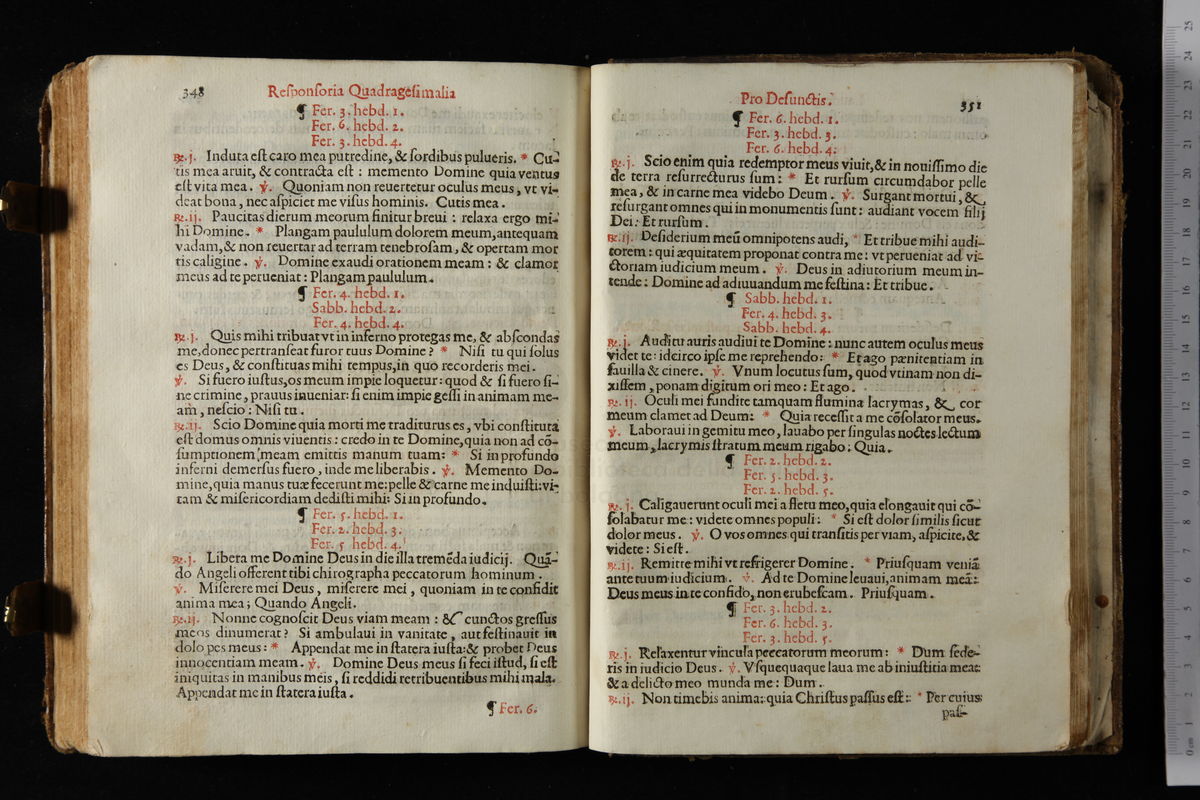 348
Reſponſoria Quadrageſimalia
¶ Fer. 3. hebd. 1.
Fer. 6. hebd. 2.
Fer. 3. hebd. 4.
℟.j. Induta eſt caro mea putredine, & ſordibus pulueris. * Cu-
tis mea aruit, & contracta eſt : memento Domine quia ventus
eſt vita mea. ℣. Quoniam non reuertetur oculus meus, vt vi-
deat bona, nec aſpiciet me viſus hominis. Cutis mea.
℟.ij. Paucitas dierum meorum finitur breui : relaxa ergo mi-
hi Domine. * Plangam paululum dolorem meum, antequam
vadam, & non reuertar ad terram tenebroſam, & opertam mor
tis caligine. ℣. Domine exaudi orationem meam : & clamor
meus ad te perueniat : Plangam paululum.
¶ Fer. 4. hebd. 1.
Sabb. hebd. 2.
Fer. 4. hebd. 4.
℟.j. Quis mihi tribuat vt in inferno protegas me, & abſcondas
me, donec pertranſeat furor tuus Domine ? * Niſi tu qui ſolus
es Deus, & conſtituas mihi tempus, in quo recorderis mei.
℣. Si fuero iuſtus, os meum impie loquetur : quod & ſi fuero ſi-
ne crimine, prauus inueniar: ſi enim impie geſſi in animam me-
am, neſcio : Niſi tu.
℟.ij. Scio Domine quia morti me traditurus es, vbi conſtituta
eſt domus omnis viuentis : credo in te Domine, quia non ad cō-
ſumptionem meam emittis manum tuam: * Si in profundo
inferni demerſus fuero, inde me liberabis. ℣. Memento Do-
mine, quia manus tuæ fecerunt me: pelle & carne me induiſti: vi-
tam & miſericordiam dediſti mihi: Si in profundo.
¶ Fer. 5. hebd. 1.
Fer. 2. hebd. 3.
Fer. 5 hebd. 4.
℟.j. Libera me Domine Deus in die illa tremēda iudicij. Quā-
do Angeli offerent tibi chirographa peccatorum hominum.
℣. Miſerere mei Deus, miſerere mei, quoniam in te confidit
anima mea ; Quando Angeli.
℟.ij. Nonne cognoſcit Deus viam meam : & cunctos greſſus
meos dinumerat ? Si ambulaui in vanitate, aut feſtinauit in
dolo pes meus : * Appendat me in ſtatera iuſta: & probet Deus
innocentiam meam. ℣. Domine Deus meus ſi feci iſtud, ſi eſt
iniquitas in manibus meis, ſi reddidi retribuentibus mihi mala.
Appendat me in ſtatera iuſta.
¶ Fer. 6.
Pro Defunctis.
351
¶ Fer. 6. hebd. 1.
Fer. 3. hebd. 3.
Fer. 6. hebd. 4.
℟.j. Scio enim quia redemptor meus viuit, & in nouiſſimo die
de terra reſurrecturus ſum : * Et rurſum circumdabor pelle
mea, & in carne mea videbo Deum. ℣. Surgant mortui, &
reſurgant omnes qui in monumentis ſunt : audiant vocem filij
Dei : Et rurſum.
℟.ij. Deſiderium meū omnipotens audi, * Et tribue mihi audi-
torem : qui æquitatem proponat contra me : vt perueniat ad vi-
ctoriam iudicium meum. ℣. Deus in adiutorium meum in-
tende : Domine ad adiuuandum me feſtina : Et tribue.
¶ Sabb. hebd. 1.
Fer. 4. hebd. 3.
Sabb. hebd. 4.
℟.j. Auditu auris audiui te Domine : nunc autem oculus meus
videt te : idcirco ipſe me reprehendo : * Et ago pænitentiam in
fauilla & cinere. ℣. Vnum locutus ſum, quod vtinam non di-
xiſſem, ponam digitum ori meo : Et ago.
℟.ij. Oculi mei fundite tamquam flumina lacrymas, & cor
meum clamet ad Deum: * Quia receſſit a me cōſolator meus.
℣. Laboraui in gemitu meo, lauabo per ſingulas noctes lectum
meum, lacrymis ſtratum meum rigabo : Quia.
¶ Fer. 2. hebd. 2.
Fer. 5. hebd. 3.
Fer. 2. hebd. 5.
℟.j. Caligauerunt oculi mei a fletu meo, quia elongauit qui cō-
ſolabatur me : videte omnes populi : * Si eſt dolor ſimilis ſicut
dolor meus. ℣. O vos omnes qui tranſitis per viam, aſpicite, &
videte : Si eſt.
℟.ij. Remitte mihi vt refrigerer Domine. * Priuſquam veniā
ante tuum iudicium. ℣. Ad te Domine leuaui, animam meā :
Deus meus in te confido, non erubeſcam. Priuſquam.
¶ Fer. 3. hebd. 2.
Fer. 6. hebd. 3.
Fer. 3. hebd. 5.
℟.j. Relaxentur vincula peccatorum meorum : * Dum ſede-
ris in iudicio Deus. ℣. Vſquequaque laua me ab iniuſtitia mea:
& a delicto meo munda me : Dum.
℟.ij. Non timebis anima: quia Chriſtus paſſus eſt : * Per cuius
paſ-